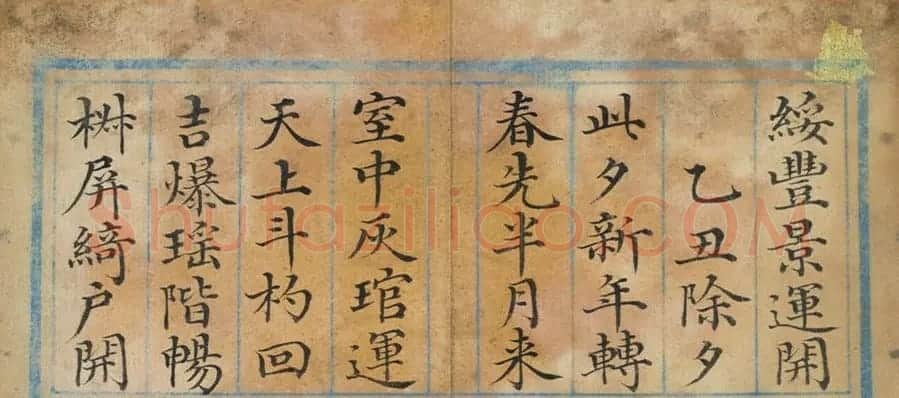 綏豐景運開
乙丑除夕
此夕新年轉
春先半月来
室中灰琯運
天上斗杓回
吉爆瑶階暢
椒屏綺户開
shufaziliao.COM